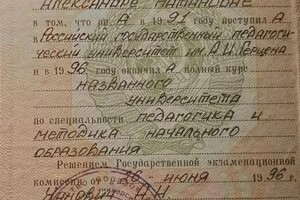 в том, что он А в 1991 году поступил А
в Российский государственный педагоги-
ческий университет им. А.И. Герцена
и в 1996 году окончил А полный курс
названного
университета
по специальности педагогика и
методика начального
образования
Решением Государственной экзаменационной
комиссии от 26 июня 1996 г.